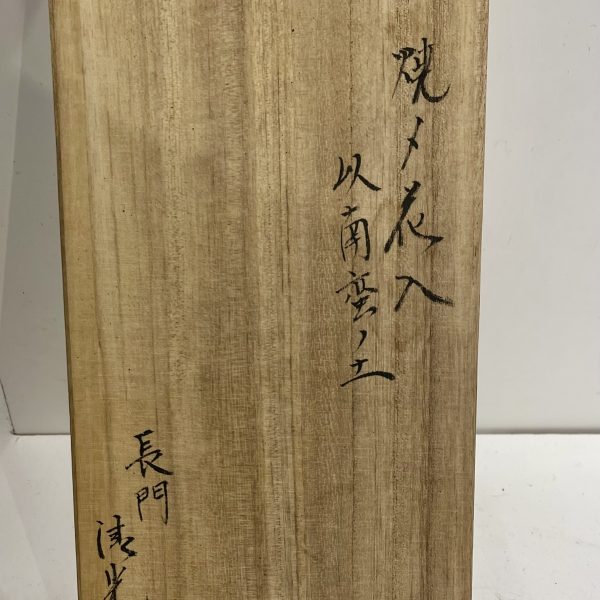 焼〆花入
以南蛮ノ土
長門
清光